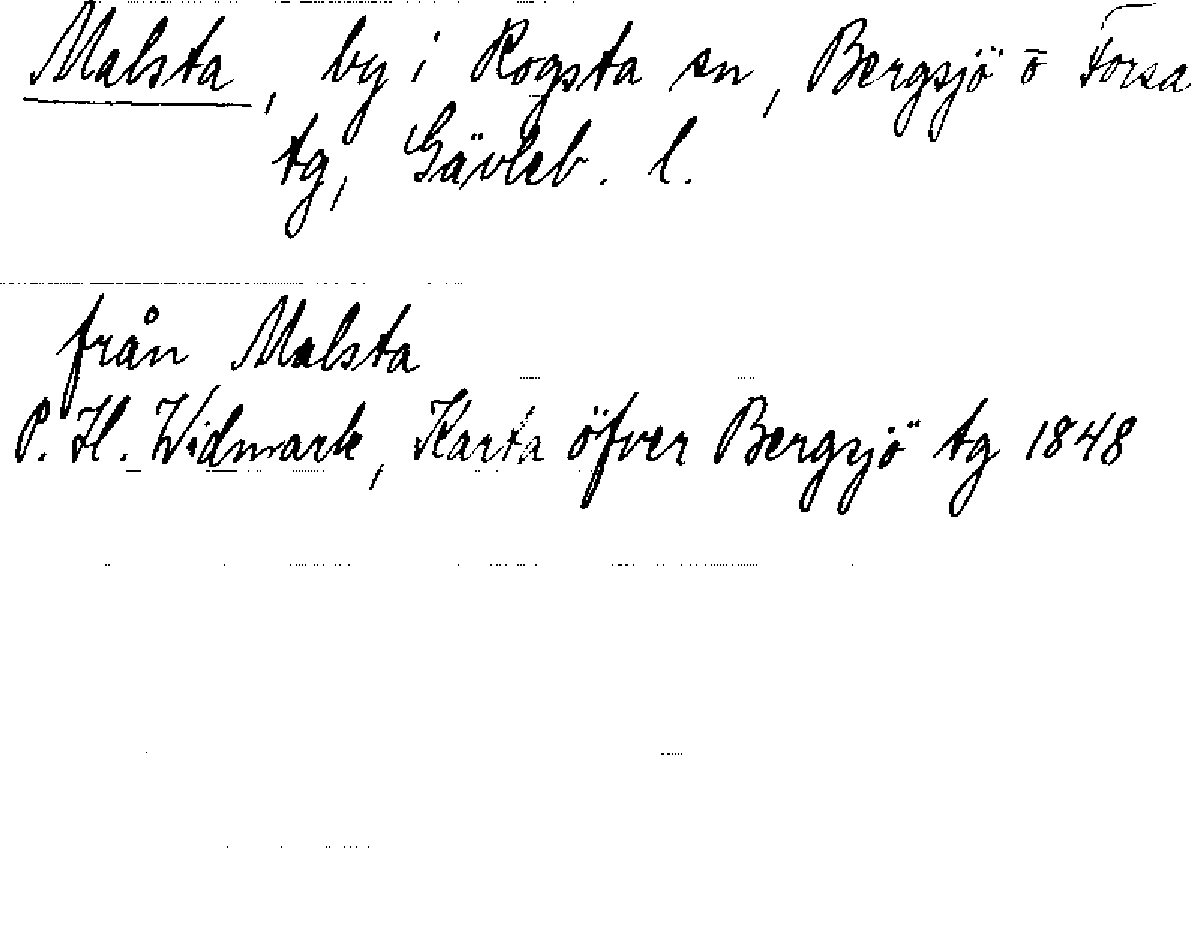 Malsta, by i Rogsta sn, Bergsjö o Forsa
tg, Gävleb. l.
från Malsta
P. H. Widmark, Karta öfver Bergsjö tg 1848